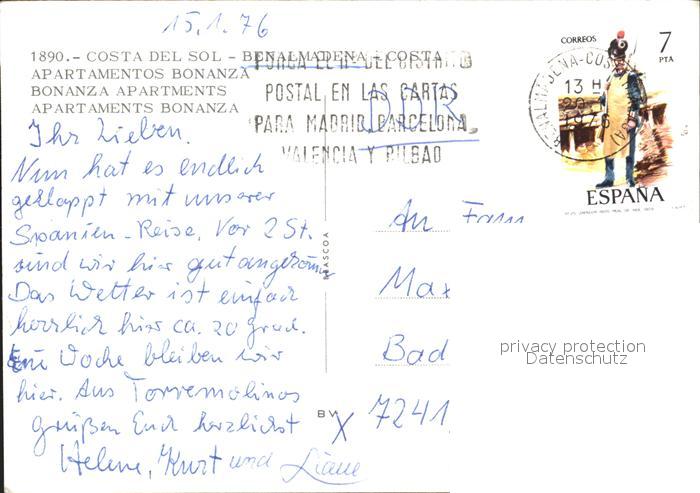 15.1.76
1890.- COSTA DEL SOL - BENALMADENA - COSTA
APARTAMENTOS BONANZA
BONANZA APARTMENTS
APARTAMENTS BONANZA
PONGA EL N. DEL DISTRITO
POSTAL EN LAS CARTAS
PARA MADRID, BARCELONA,
VALENCIA Y BILBAO
CORREOS
7
PTA
BENALMADENA-COSTA
13 H
1976
ESPAÑA
Ihr Lieben.
Nun hat es endlich
geklappt mit unserer
Spanien-Reise. Vor 2 St.
sind wir hier gut angekommen
Das Wetter ist einfach
herrlich hier ca. 20 Grad.
Eine Woche bleiben wir
hier. Aus Torremolinos
grüßen Euch herzlichst
Helene, Kurt und Liane
BEASCOA
BV
An Fam
Max
Bad
7241
privacy protection
Datenschutz